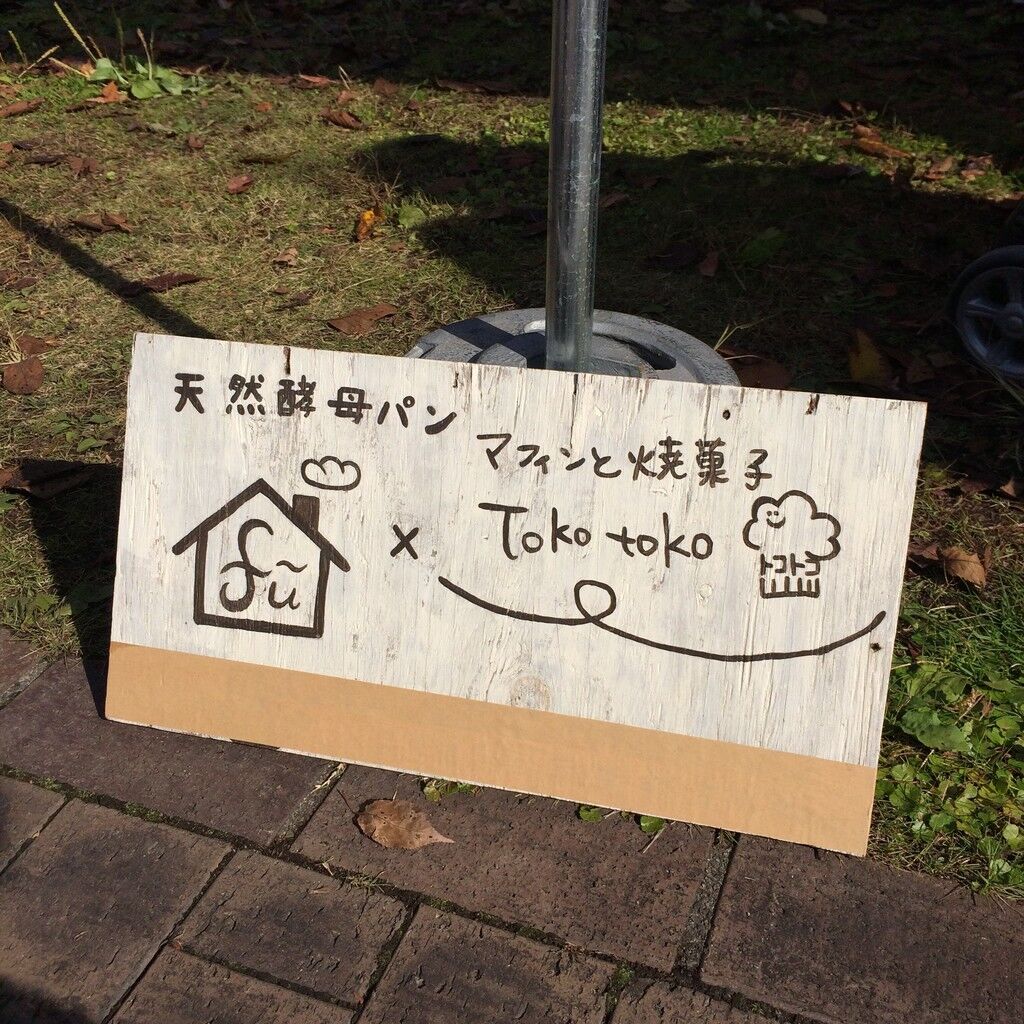 天然酵母パン
fũ
×
マフィンと焼菓子
Toko toko
トコトコ